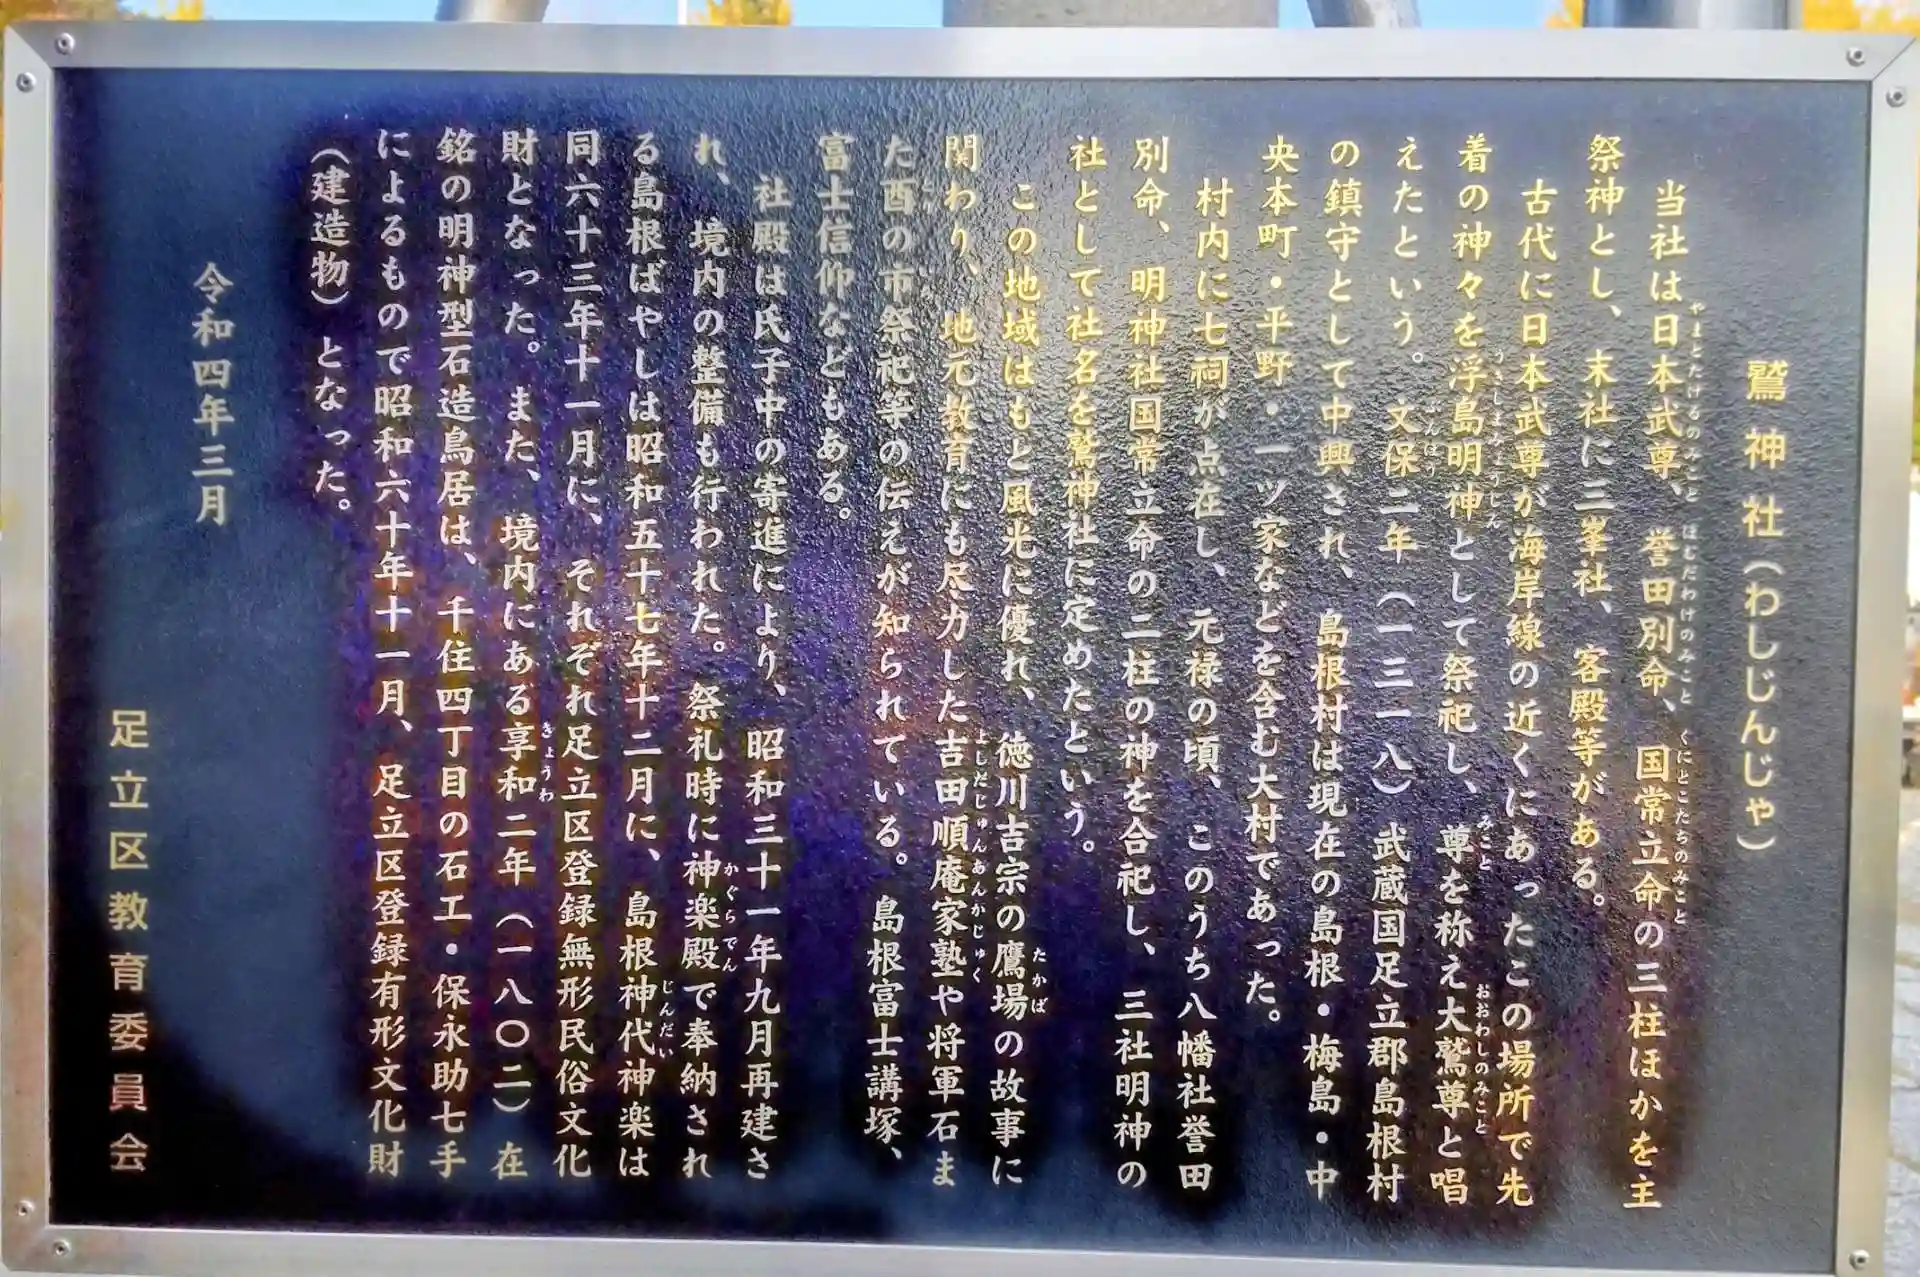 鷲神社(わしじんじゃ)
当社は日本武尊、誉田別命、国常立命の三柱ほかを主
祭神とし、末社に三峯社、客殿等がある。
古代に日本武尊が海岸線の近くにあったこの場所で先
着の神々を浮島明神として祭祀し、尊を称え大鷲尊と唱
えたという。文保二年(一三一八)武蔵国足立郡島根村
の鎮守として中興され、島根村は現在の島根・梅島・中
央本町・平野・一ツ家などを含む大村であった。
村内に七祠が点在し、元禄の頃、このうち八幡社誉田
別命、明神社国常立命の二柱の神を合祀し、三社明神の
社として社名を鷲神社に定めたという。
この地域はもと風光に優れ、徳川吉宗の鷹場の故事に
関わり、地元教育にも尽力した吉田順庵家塾や将軍石ま
た酉の市祭祀等の伝えが知られている。島根富士講塚、
富士信仰などもある。
社殿は氏子中の寄進により、昭和三十一年九月再建さ
れ、境内の整備も行われた。祭礼時に神楽殿で奉納され
る島根ばやしは昭和五十七年十二月に、島根神代神楽は
同六十三年十一月に、それぞれ足立区登録無形民俗文化
財となった。また、境内にある享和二年(一八〇二)在
銘の明神型石造鳥居は、千住四丁目の石工・保永助七手
によるもので昭和六十年十一月、足立区登録有形文化財
(建造物)となった。
令和四年三月
足立区教育委員会